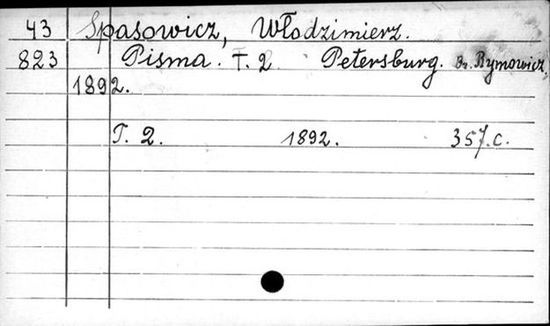 43 Spasowicz, Włodzimierz.
823 Pisma. T. 2. Petersburg. Br. Rymowicz,
1892.
T. 2. 1892. 357.c.